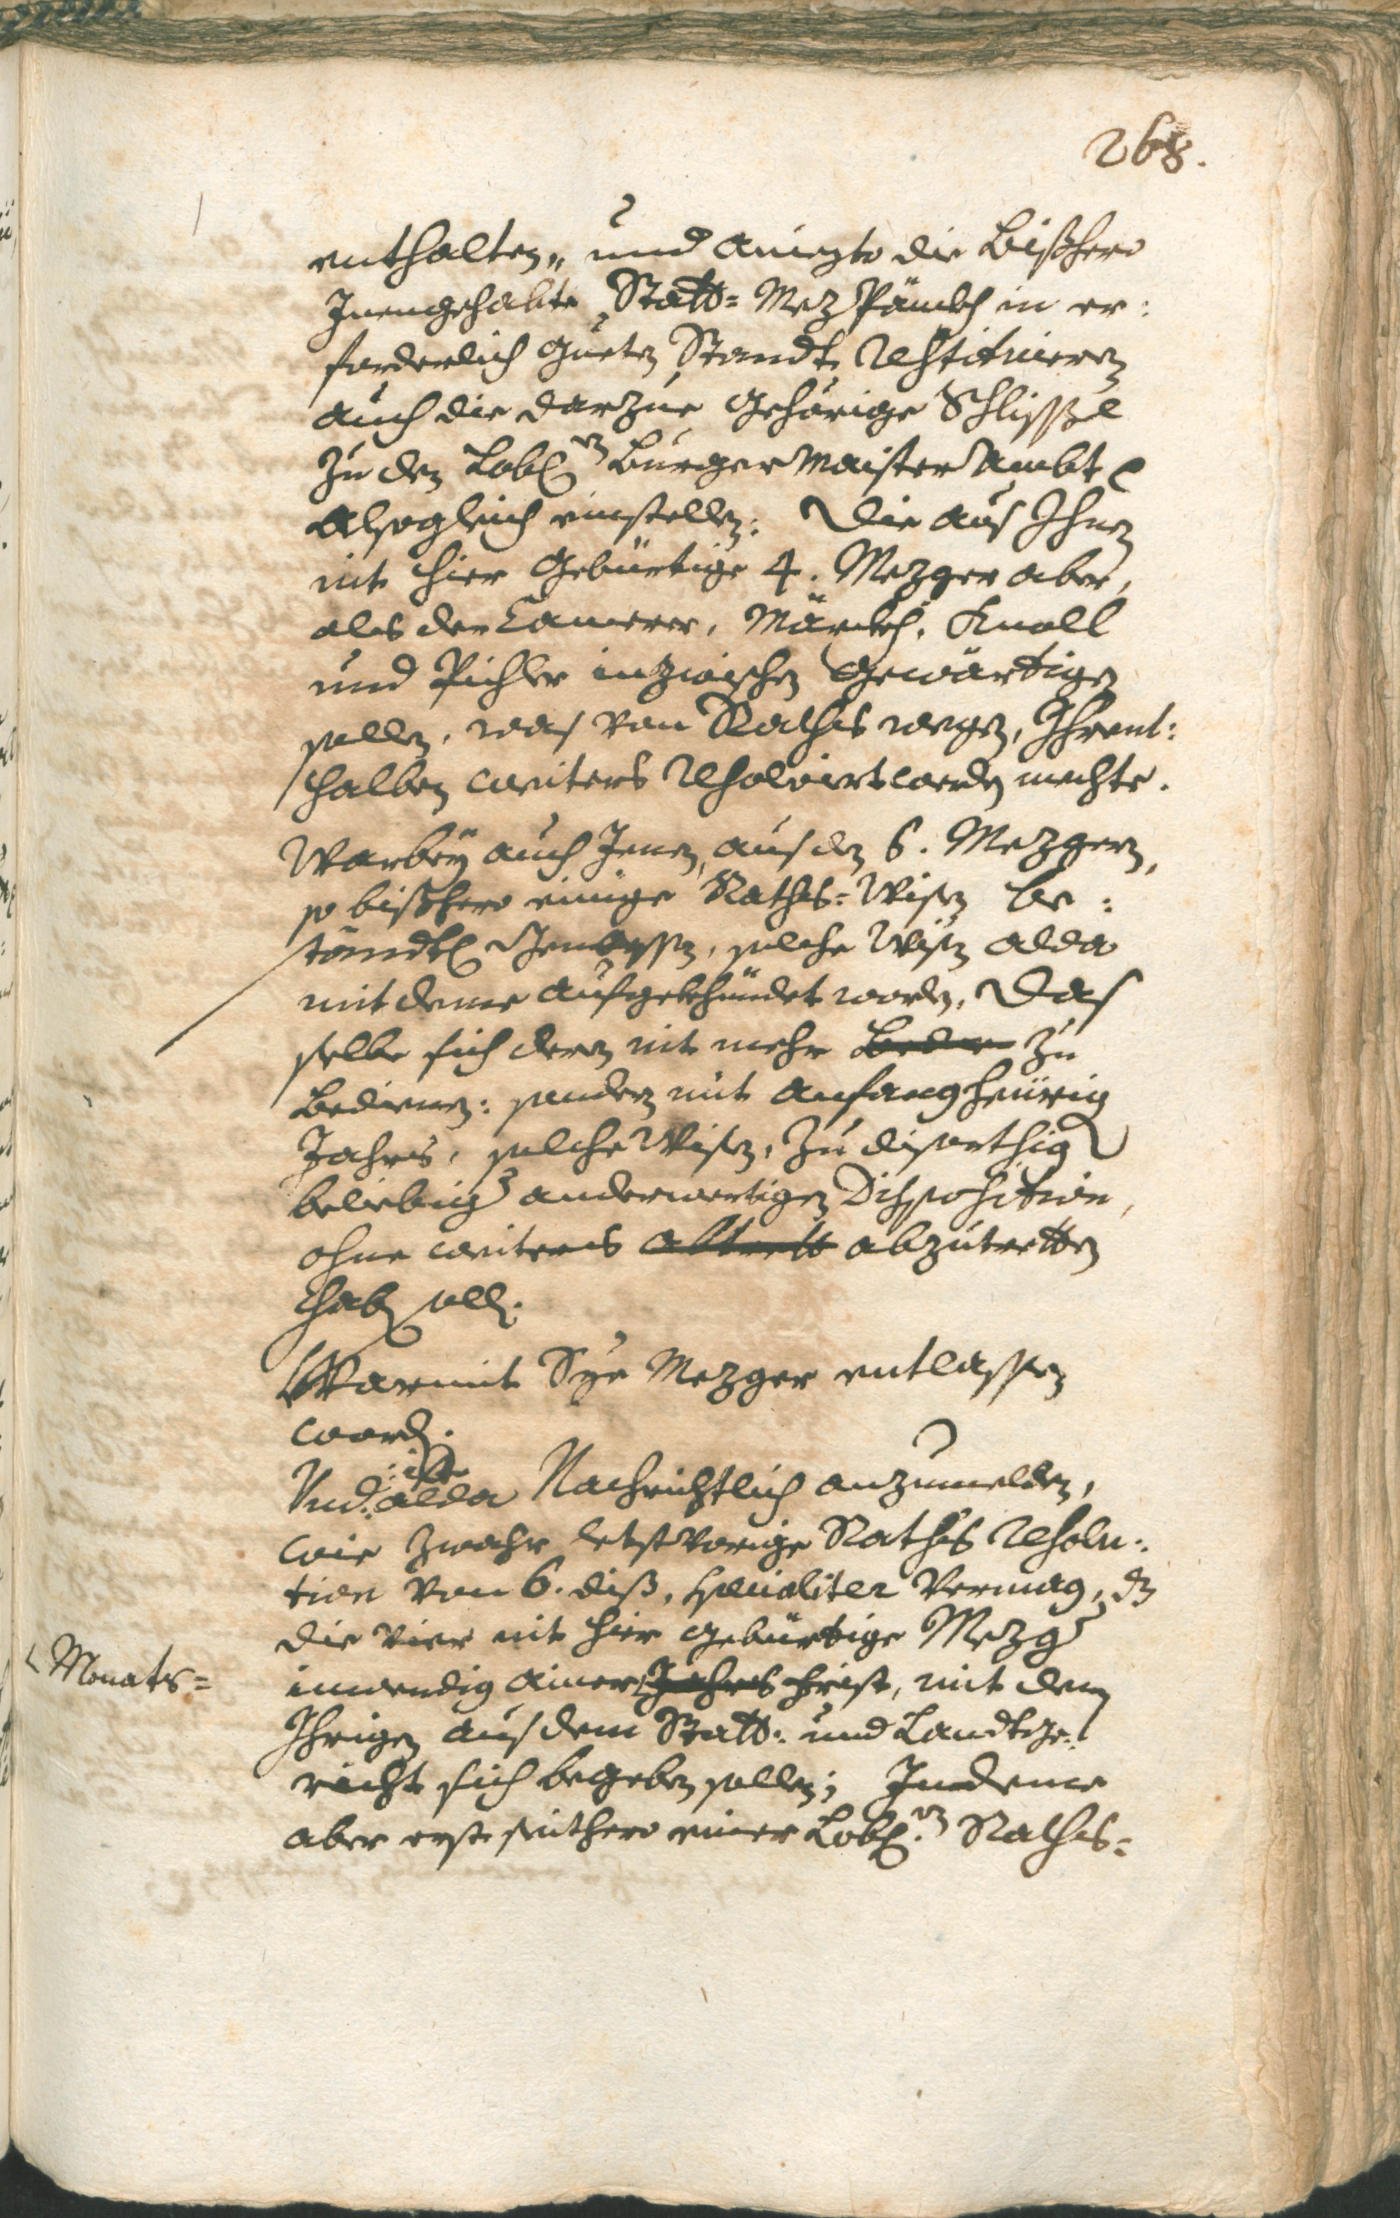 268.
enthalten, und ainigte die bißhero
Inengehabte Statt- Mezpänckh in er:
forderlich gueten Standt restituieren
auch die darzue gehörige Schlissel
zu den Lobl:en Burgermaister Ambt
alsogleich einstellen: Die aus Ihnen
nit hier gebürtige 4. Mezger aber,
als der Camerer, Märckh, Knoll
und Pichler inzwischen gewärtigen
sollen, was von Raths wegen, Ihrent:
halben weiters resolviert werden mechte.
Warbey auch Jenen, aus den 6. Mezgern,
so bißhero einige Raths-Wisen be:
ständtl genossen, solche Wisen alda
mit deme aufgekhündet worden, das
selbe sich deren nit mehr zu
bedienen: sondern mit anfang heürig
Jahrs, solche Wisen, zu diserthig
beliebig anderwertigen Disposition,
ohne weiters abtrett abzutretten
haben solln.
Warmit Sye Mezger entlassen
word.
Und ist alda Nachrichtlich anzumelden,
wie zwahr letstvorige Raths Resolu:
tion von 6. diß, specialiter vermag, dz
die vier nit hier gebürtige Mezger
inwendig ainer Jahrs frist, mit den
<Monats=
Ihrigen aus dem Statt: und Landtge:
richt sich begeben sollen; Indeme
aber erst seithero einer Lobl:en Raths=